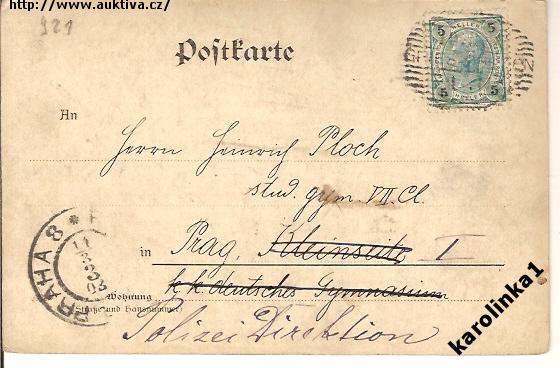 http://www.auktiva.cz/
921
Postkarte
5 5
HELLER
5 5
An
Herrn Heinrich Ploch
stud. gym. VII. Cl.
in Prag, Kleinseite I
k. k. deutsches Gymnasium
Wohnung
(Straße und Hausnummer)
Polizei Direktion
PRAHA 8
03
karolinka1